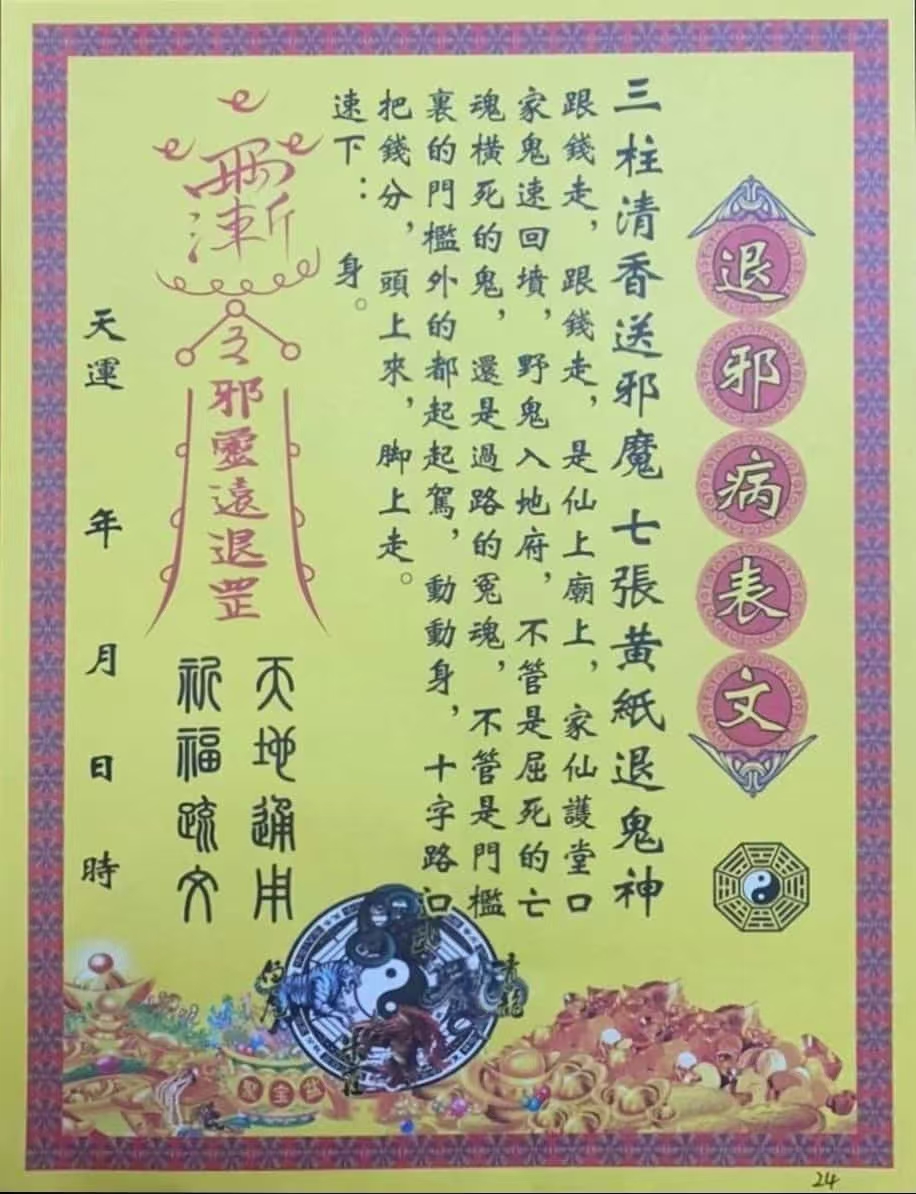 退邪病表文
三柱清香送邪魔 七張黃紙退鬼神
跟錢走，跟錢走，是仙上廟上，家仙護堂口
家鬼速回墳，野鬼入地府，不管是屈死的亡
魂橫死的鬼，還是過路的冤魂，不管是門檻
裏的門檻外的都起起駕，動動身，十字路口
把錢分，頭上來，脚上走。
速下：身。
令
邪靈遠退罡
天地通用
祈福疏文
天運 年 月 日 時
24